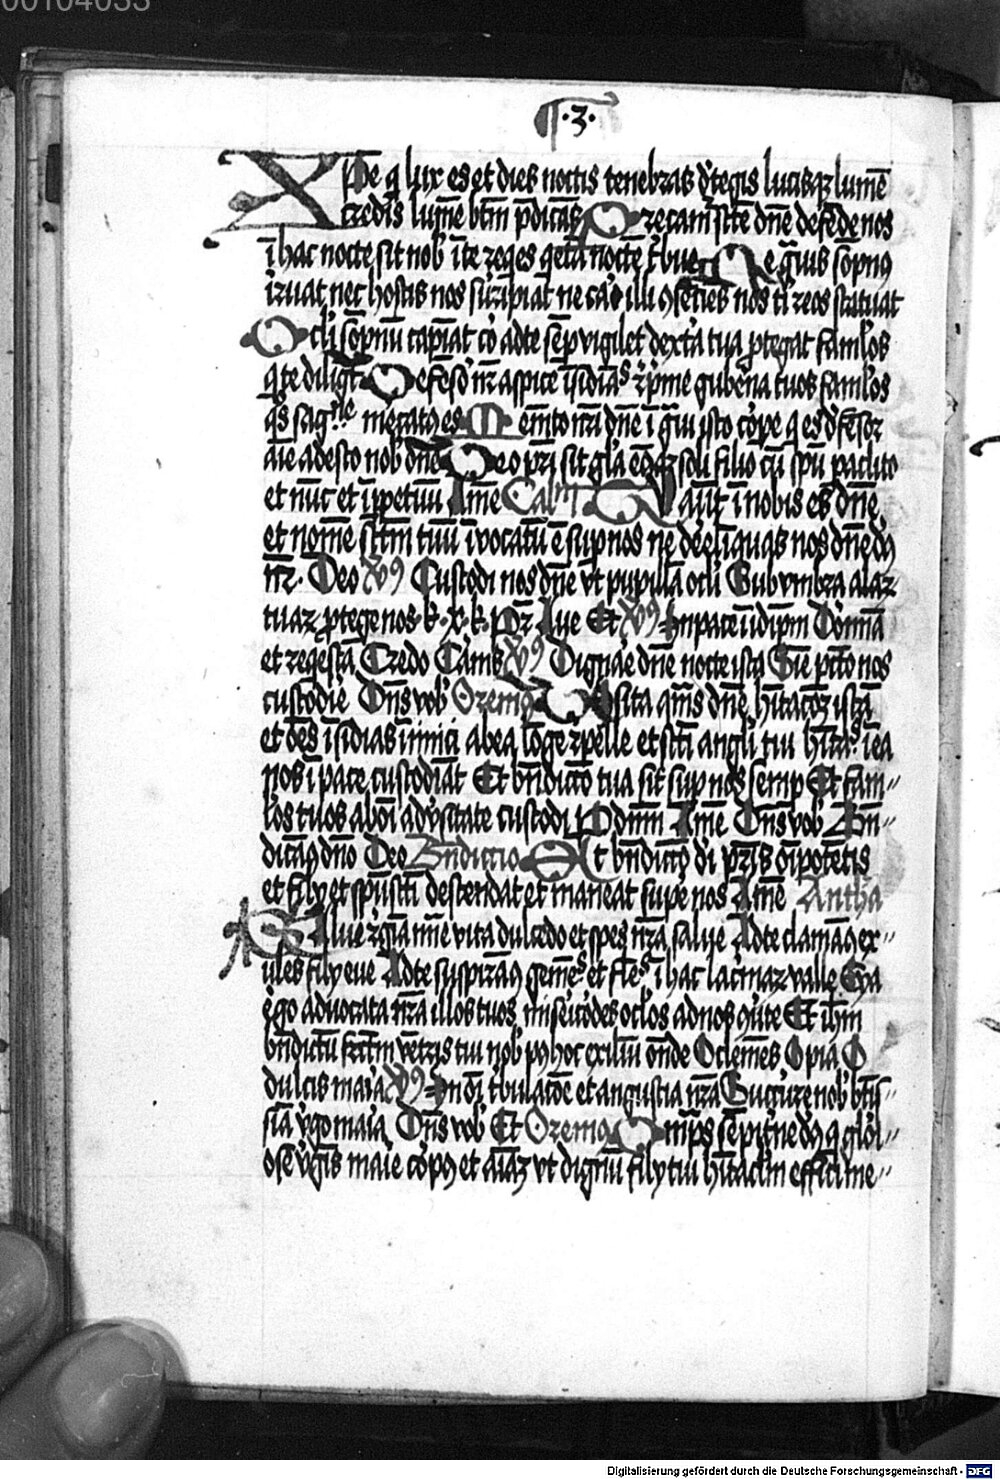 00104033
¶ ·3·
Xpe q lux es et dies noctis tenebras d̕tegis lucisqꝫ lumē
credis lumē btm̄ p̄dicās Precam̄ scte dn̄e defēde nos
ī hac nocte sit nob̕ ī te reqes qetā noctē t̕bue Ne g̃uis sōpnꝰ
irruat nec hostis nos surripiat ne caro illi ꝯsēcies nos ti reos statuat
Ocl̕i sōpnū capiāt cor ad te sēp vigilet dext̕a tua ꝓtegat famlos
q te diligt̄ Defēsor nr̄ aspice īsidiās rp̄me gub̕na tuos famlos
qs sāg̃ne mercatꝰ es Memēto nr̄i dn̄e ī g̃ui isto corpe q es d̕fēsor
aīe adesto nob̕ dn̄e Deo pr̄i sit gl̄a eiꝰqꝫ soli filio cū spū paclito
et nūc et ī ppetuū Amē Cap̕lm Tu aūt̄ ī nobis es dn̄e
et nomē sctm tuū īvocatū ē sup nos ne dereliquas nos dn̄e dꝰ
nr̄. Deo Vꝰ Custodi nos dn̄e vt pupillā ocli Sub vmbra alaꝝ
tuaꝝ ꝓtege nos k̕. x. k̕. Pr̄ Aue Et Vꝰ In pace ī idip̄m Dormiā
et reqescā Credo Carnis Vꝰ Dignare dn̄e nocte ista Sine pccto nos
custodire Dn̄s vob̕ Oremꝰ Visita qm̄s dn̄e hītacōꝫ istā
et oēs īsidias inimici ab ea lōge repelle et scti angli tui hītātes ī ea
nos ī pace custodiāt Et bn̄dictio tua sit sup nos semp Et fam⸗
los tuos ab oī adv̕sitate custodi P dnm̄ Amē Dn̄s vob̕ Bn̄⸗
dicamꝰ dn̄o Deo Bn̄dictio Et bn̄dictio di pr̄is oīpotētis
et filij et spūs scti descendat et maneat super nos Amē Antha
Salue regīa mīe vita dulcedo et spes nr̄a salue Ad te clamamꝰ ex⸗
ules filij eue Ad te suspiramꝰ gemētes et flētes ī hac lac̕maꝝ valle Eya
ergo aduocata nr̄a illos tuos mis̕icordes oclos ad nos ꝯuerte Et ih̄m
bn̄dictū fructū vētris tui nob̕ pꝰ hoc exiliū ostende O clemēs O pia O
dulcis maria Vꝰ In oī t̕bulacōe et angustia nr̄a Succurre nob̕ btis⸗
sīa v̕go maria Dn̄s vob̕ Et Oremꝰ Omp̄s sēpit̕ne dꝰ q glori⸗
ose v̕gīs marie corpꝰ et aīaꝫ vt dignū filij tui hītaclm effici me⸗
Digitalisierung gefördert durch die Deutsche Forschungsgemeinschaft - DFG